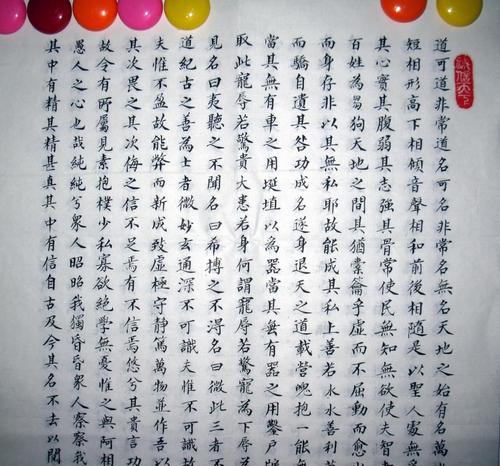 道可道非常道名可名非常名無名天地之始有名萬
短相形高下相傾音聲相和前後相隨是以聖人處無
其心實其腹弱其志強其骨常使民無知無欲使夫智
百姓為芻狗天地之間其猶橐籥乎虛而不屈動而愈出
而身存非以其無私耶故能成其私上善若水水善利萬
而驕自遺其咎功成名遂身退天之道載營魄抱一能無
當其無有車之用埏埴以為器當其無有器之用鑿戶牖
取此寵辱若驚貴大患若身何謂寵辱若驚寵為下
見名曰夷聽之不聞名曰希搏之不得名曰微此三者不
道紀古之善為士者微妙玄通深不可識夫惟不可識故
夫惟不盈故能弊而新成致虛極守靜篤萬物並作吾以
其次畏之其次侮之信不足焉有不信焉悠兮其貴言功
故令有所屬見素抱樸少私寡欲絕學無憂惟之與阿相
愚人之心也哉純純兮衆人昭昭我獨昏昏衆人察察我
其中有精其精甚真其中有信自古及今其名不去以閱